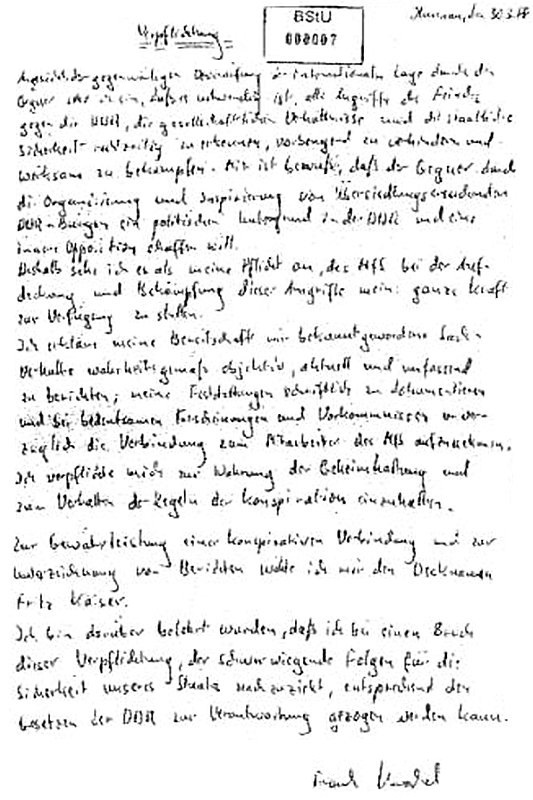 BStU
000007
den 30.3.88
Verpflichtung
Angesichts der gegenwärtigen Verschärfung der internationalen Lage durch den
Gegner sehe ich ein, daß es notwendig ist, alle Angriffe des Feindes
gegen die DDR, die gesellschaftlichen Verhältnisse und die staatliche
Sicherheit rechtzeitig zu erkennen, vorbeugend zu verhindern und
wirksam zu bekämpfen. Mir ist bewußt, daß der Gegner durch
die Organisierung und Inspirierung von Übersiedlungsersuchenden
DDR-Bürgern ein politischen Untergrund in der DDR und eine
innere Opposition schaffen will.
Deshalb sehe ich es als meine Pflicht an, das MfS bei der Auf-
deckung und Bekämpfung dieser Angriffe meine ganze Kraft
zur Verfügung zu stellen.
Ich erkläre meine Bereitschaft mir bekanntgewordene Sach-
verhalte wahrheitsgemäß objektiv, aktuell und umfassend
zu berichten; meine Feststellungen schriftlich zu dokumentieren
und bei bedeutsamen Erscheinungen und Vorkommnissen unver-
züglich die Verbindung zum Mitarbeiter des MfS aufzunehmen.
Ich verpflichte mich zur Wahrung der Geheimhaltung und
zum Verhalten der Regeln der Konspiration einzuhalten.
Zur Gewährleistung einer konspirativen Verbindung und zur
Unterzeichnung von Berichten wähle ich mir den Decknamen
Fritz Kaiser.
Ich bin darüber belehrt wurden, daß ich bei einen Bruch
dieser Verpflichtung, der schwerwiegende Folgen für die
Sicherheit unseres Staates nach zu zieht, entsprechend den
Gesetzen der DDR zur Verantwortung gezogen werden kann.
Frank